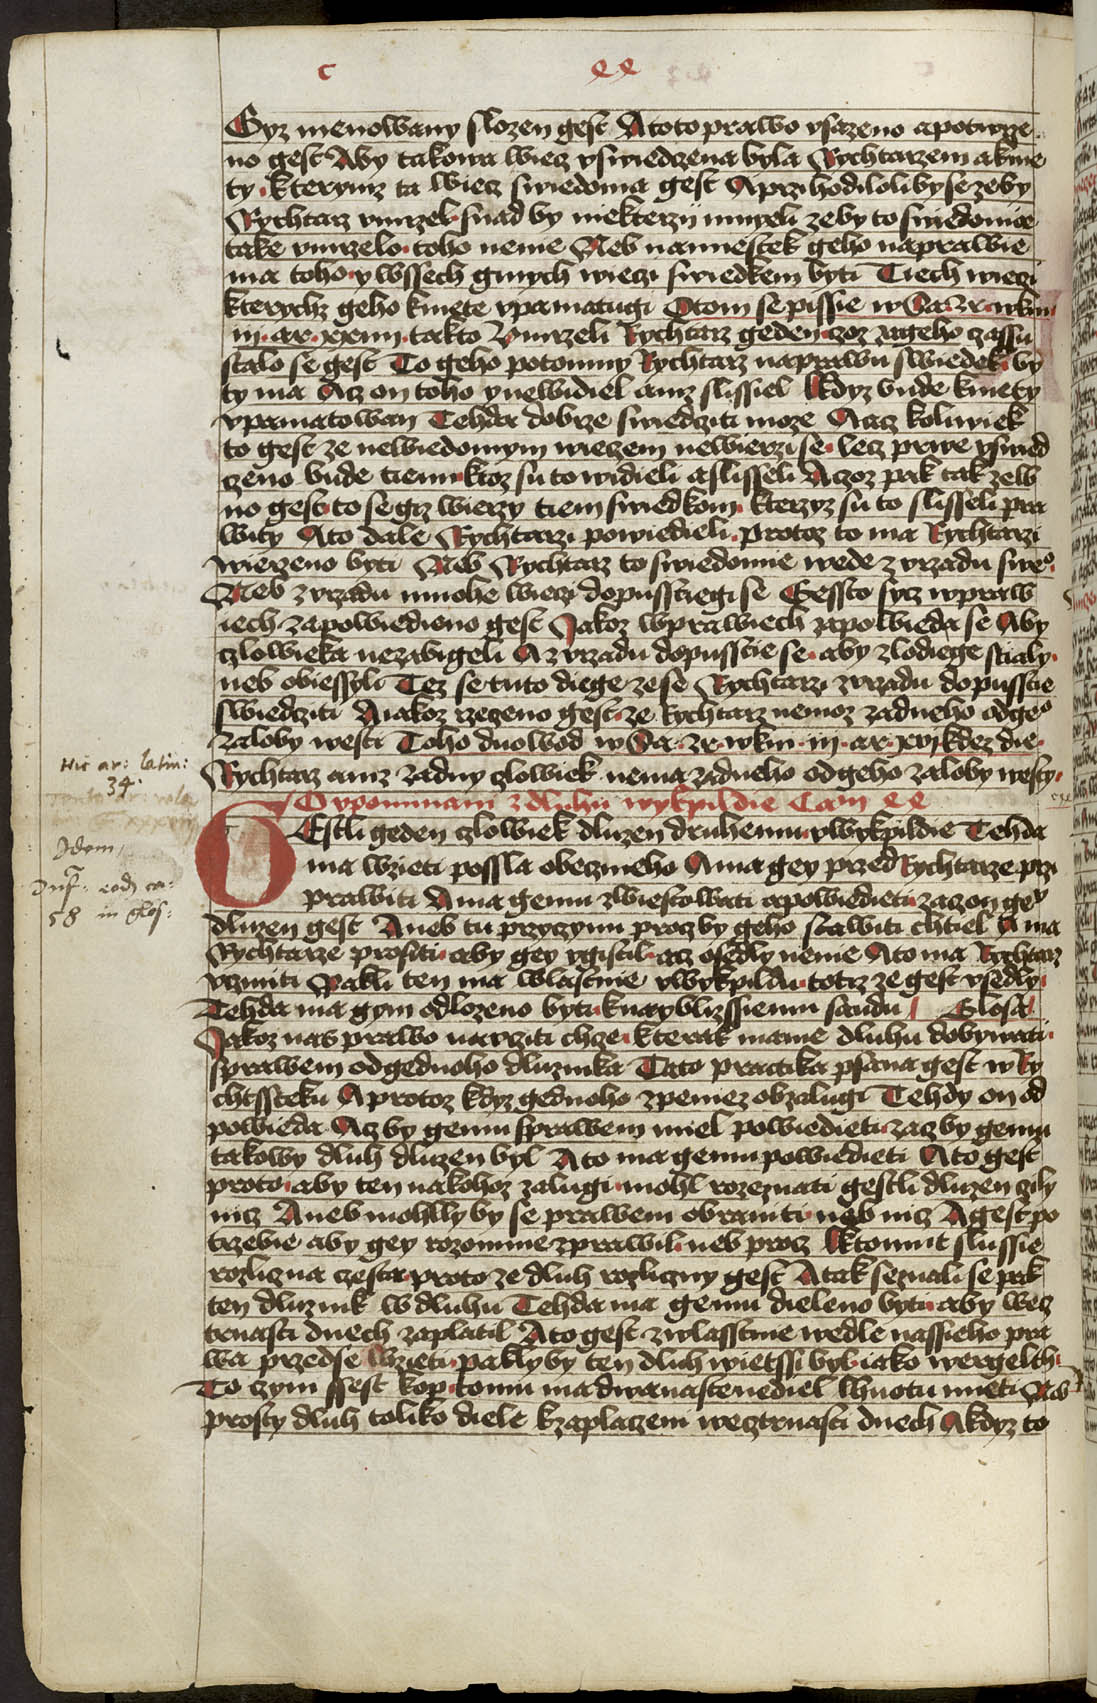 c ꝛꝛ
Gyz menowany slozen gest A toto prawo vsazeno a potwrze
no gest Aby takowa wiecz vswiedczena byla Rychtarzem a kme
ty kterymz ta wiecz swiedoma gest A przihodiloliby se zeby
Rychtarz vmrzel snad by niekterzij mneli zeby to swiedomie
take vmrzelo toho neme Neb namestek geho na prawie
ma toho y wssech ginych wieczi swiedkem byti Tiech wieczi
kterychz geho kmete vpamatugi O tom se pissie w
takto Vmrzeli Rychtarz geden czoz za geho czassu
stalo se gest To geho potomny Rychtarz na prawu swiedek by
ty ma Acz on toho y newidiel anız slissiel Kdyz bude kmety
vpamatowan Tehda dobrze swiedcziti moze A acz koliwiek
to gest ze newiedomym wieczem newierzi se lecz prwe vswied
czeno bude tiemi ktoz su to widieli a slisseli A czoz pak tak zew
no gest to se giz wierzy tiem swiedkom kterzyz su to slisseli pra
wity A to dale Rychtarzi powiedieli protoz to ma Rychtarzi
wierzeno byti Neb Rychtarz to swiedomie wede z vrzadu sweº
Neb z vrzadu mnohe wieczi dopusstiegi se Gessto sycz w praw
iech zapowiedieno gest Jakoz w prawiech zapowieda se Aby
czlowieka nezabigeli A z vrzadu dopusstie se aby zlodiege stialy
neb obiessyli Tez se tuto diege ze se Rychtarzi z vrzadu dopusstie
swiedcziti A iakoz rzeczeno gest ze Rychtarz nemoz zadneho od geº
zaloby westi Toho duowod w kdez die
Rychtarz aniz zadny czlowiek nema zadneho od geho zaloby westy
Hic ar: latin:
34.
O vpominani z dluhu w wykpildie Cam ꝛꝛ
Idem
Inf: eod ca:
58 in glos:
GEstli geden czlowiek dluzen druhemu w wykpildie Tehda
ma wzieti possla obeczneho A ma gey przed Rychtarze przi
prawiti A ma gemu zwiestowati a powiedieti zacz on gey
dluzen gest A neb tu przyczynu procz by geho stawiti chtiel A ma
Rychtarze prositi aby gey vgistil acz osedly neme A to ma Rychtarz
vcziniti Pakli ten ma wlastnie w wykpildu totiz ze gest vsedly
Tehda ma gym odlozeno byti k nayblizssiemu saudu Glosa
Jakoz nas prawo naucziti chce kterak mame dluhu dobywati
s prawem od gednoho dluznika Tato practika psana gest w Ry
chtssteku A protoz kdyz gednoho z peniez obzalugi Tehdy on od
powieda Acz by gemu s prawem miel powiedieti zacz by gemu
takowy dluh dluzen byl A to ma gemu powiedieti A to gest
proto aby ten na kohoz zalugi mohl rozeznati gestli dluzen czily
nicz A neb mohlly by se prawem obraniti neb nicz A gest po
trzebie aby gey rozomnie zprawil neb procz K tomut slussie
rozliczna czesta proto ze dluh rozliczny gest A tak seznali se pak
ten dluznik w dluhu Tehda ma gemu dieleno byti aby wecz
trnasti dnech zaplatil A to gest zwlasstnie wedle nassieho pra
wa przedse wzieti paklyby ten dluh wietssi byl iako wergelth
To czym ssest kop tomu ma dwanaste nediel lhuotu mieti Neb
prosty dluh toliko diele k zaplaczeni wecztrnasti dnech A kdyz to